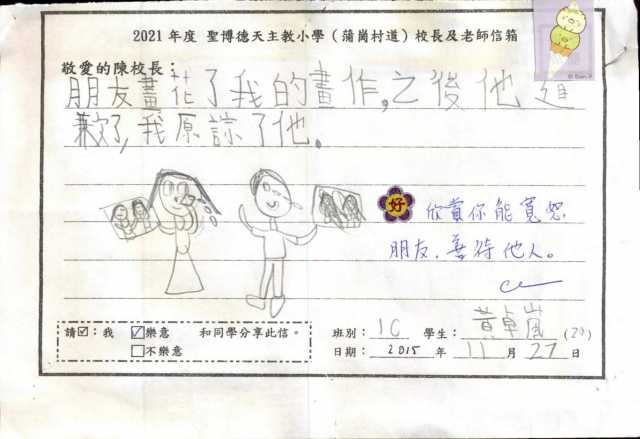 2021 年度 聖博德天主教小學（蒲崗村道）校長及老師信箱
敬愛的陳校長：
朋友畫花了我的畫作,之後他 道
歉了,我原諒了他。
好
欣賞你能寬恕
朋友，善待他人。
請☑：我 ☑樂意 和同學分享此信。
□不樂意
班別：1C 學生：黃卓嵐 (20)
日期：2015 年 11 月 27 日